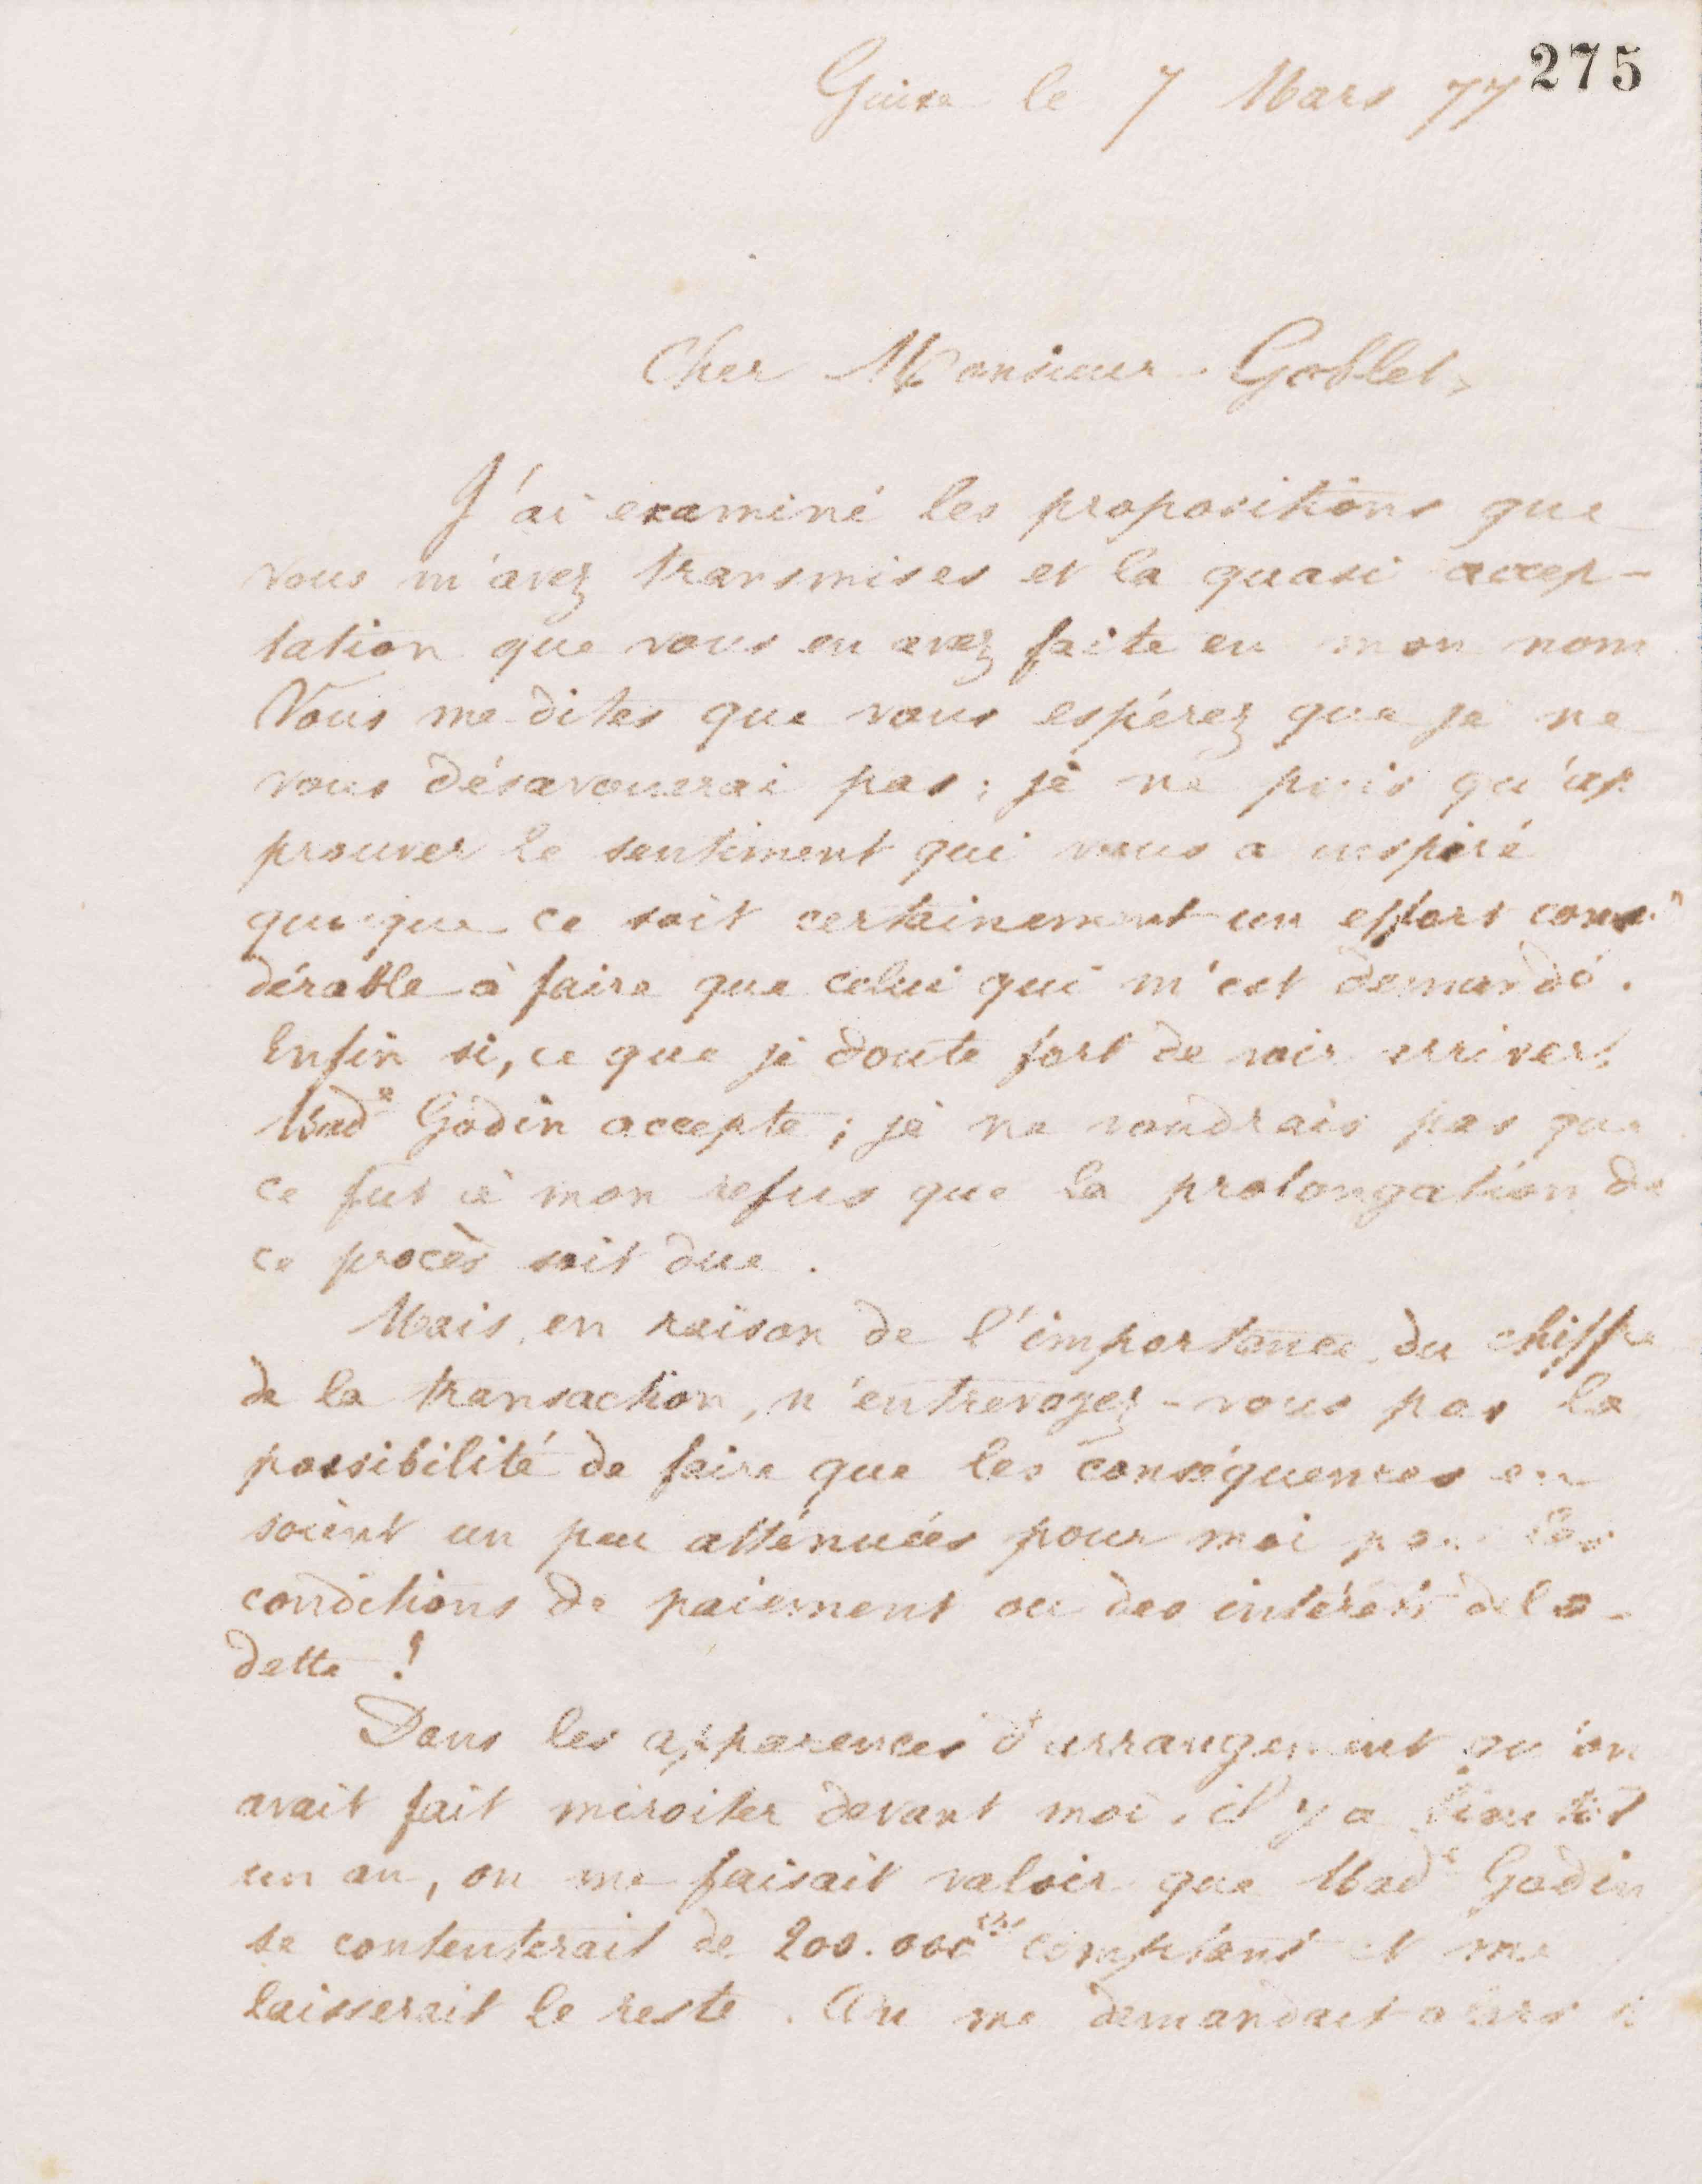 275
Guise le 7 Mars 77
Cher Monsieur Goblet,
J'ai examiné les propositions que
vous m'avez transmises et la quasi accep-
tation que vous en avez faite en mon nom
Vous me dites que vous espérez que je ne
vous désavouerai pas ; je ne puis qu'ap
prouver le sentiment qui vous a inspiré
quoique ce soit certainement un effort consi
dérable à faire que celui qui m'est demandé.
Enfin si, ce que je doute fort de voir arriver,
Made Godin accepte ; je ne voudrais pas que
ce fut à mon refus que la prolongation de
ce procès soit due.
Mais en raison de l'importance du chiffre
de la transaction, n'entrevoyez-vous pas la
possibilité de faire que les conséquences en
soient un peu atténuées pour moi par les
conditions de paiement ou des intérêts de la
dette !
Dans les apparences d'arrangement qu'on
avait fait miroiter devant moi, il y a bientôt
un an, on me faisait valoir que Made Godin
se contenterait de 200.000 comptant et me
laisserait le reste. On me demandait alors